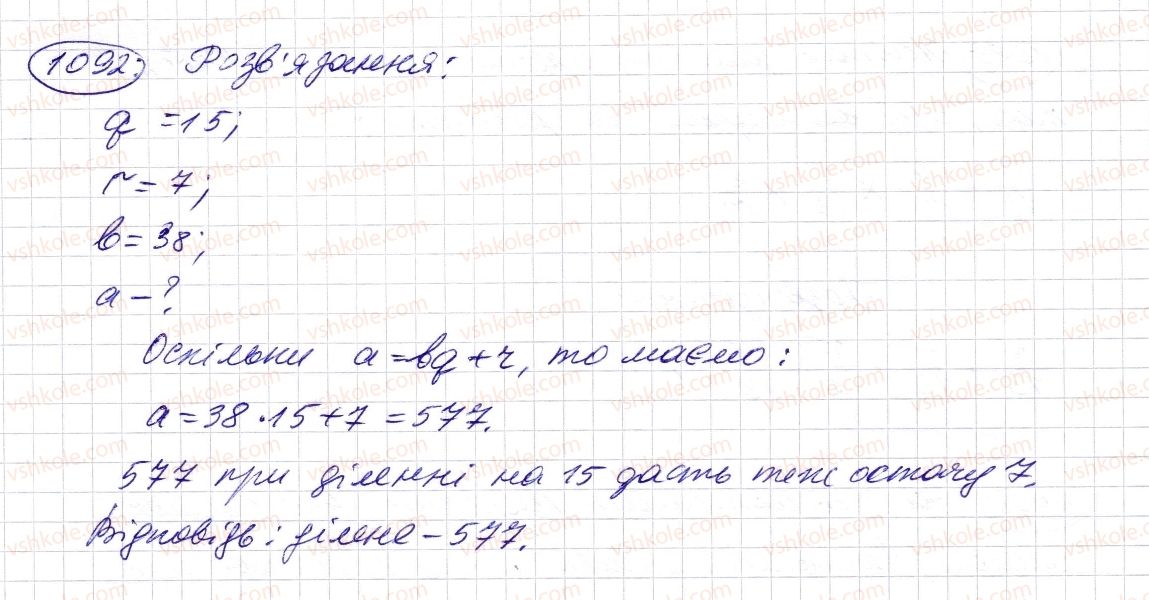 1092. Розв'язання:
q = 15;
r = 7;
b = 38;
a - ?
Оскільки a = bq + r, то маємо:
a = 38 · 15 + 7 = 577.
577 при діленні на 15 дасть теж остачу 7.
Відповідь: ділене - 577.